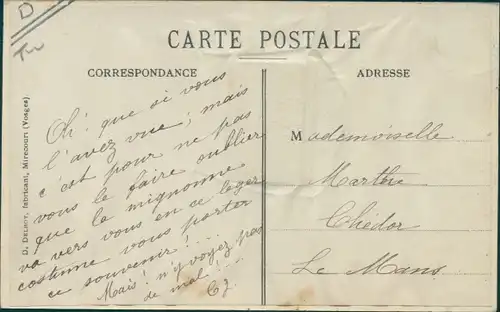 D
CARTE POSTALE
CORRESPONDANCE
ADRESSE
Oh! que si vous
l'avez vue; mais
c'est pour ne pas
vous le faire oublier
que la mignonne
va vers vous en ce léger
costume vous porter
ce souvenir!...
Mais! n'y voyez pas
de mal!...
Mademoiselle
Marthe
Chédor
Le Mans
D. Delboy, fabricant, Mirecourt (Vosges)